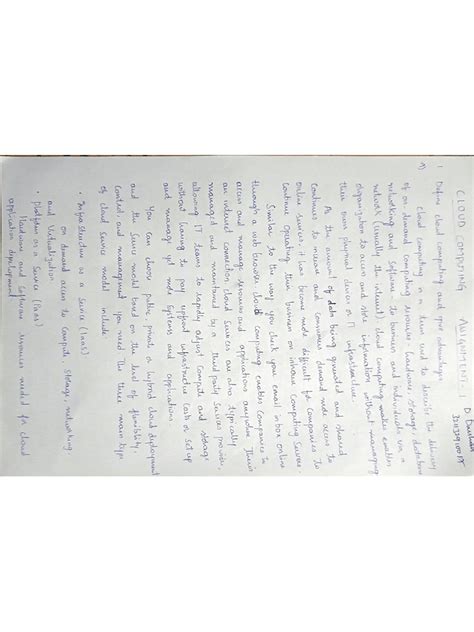 CLOUD COMPUTING ASSIGNMENT - 1
1 Define cloud computing and your advantages
A) Cloud computing is a term used to describe the delivery
of on demand computing resources - hardware, storage, database
networking and software - to business and individuals via a
network (usually the internet) cloud computing enables
organization to access and store information without managing
their own physical devices or IT infrastructure.
As the amount of data being generated and shared
continues to increase and consumers demand more access to
online services, it has become more difficult for companies to
continue operating their business on in-house computing servers.
Similar to the way you check your email in box online
through a web browser, cloud computing enables companies to
access and manage resources and applications anywhere Their
an internet connection. cloud services are also typically
managed and maintained by a third party services provider,
allowing IT teams to rapidly adjust compute and storage
without having to pay upfront infrastructure costs or set up
and manage yet more systems and applications
You can choose public, private or hybrid cloud deployment
and the service model based on the level of flexibility,
control, and management you need The three main type
of cloud service model include
• Infrastructure as a service (IaaS)
on demand access to compute, storage, networking
and virtualization
• Platform as a Service (PaaS)
Hardware and software resources needed for cloud
application development